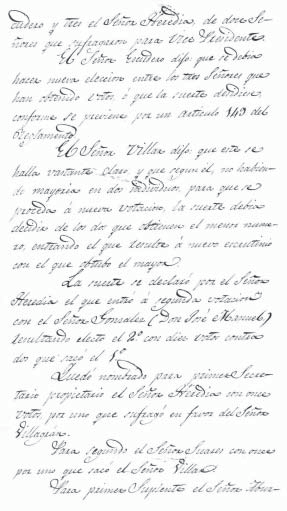 tudero y tres el Señor Heredia, de doce Se-
ñores que sufragaron para Vice Presidente.
El Señor Escudero dijo: que se debia
hacer nueva eleccion entre los tres Señores que
han obtenido votos, ó que la suerte decidiese,
conforme se previene por un articulo 143 del
Reglamento.
El Señor Villa dijo: que este se
halla bastante claro, y que segun el, no habien-
do mayoria en dos individuos, para que se
proceda á nueva votacion, la suerte debia
decidir de los dos que obtienen el menor nume-
ro, entrando el que resulte á nuevo escrutinio
con el que obtubo el mayor.
La suerte se declaró por el Señor
Heredia el que entró á segunda votacion
con el Señor Gonzales (Don José Manuel)
resultando electo el 2º con diez votos contra
dos que sacó el 1º
Quedó nombrado para primer Secre-
tario propietario el Señor Heredia con once
votos, por uno que sufragó en favor del Señor
Villagrán.
Para segundo el Señor Suares con once
por uno que sacó el Señor Villa.
Para primer Suplente el Señor